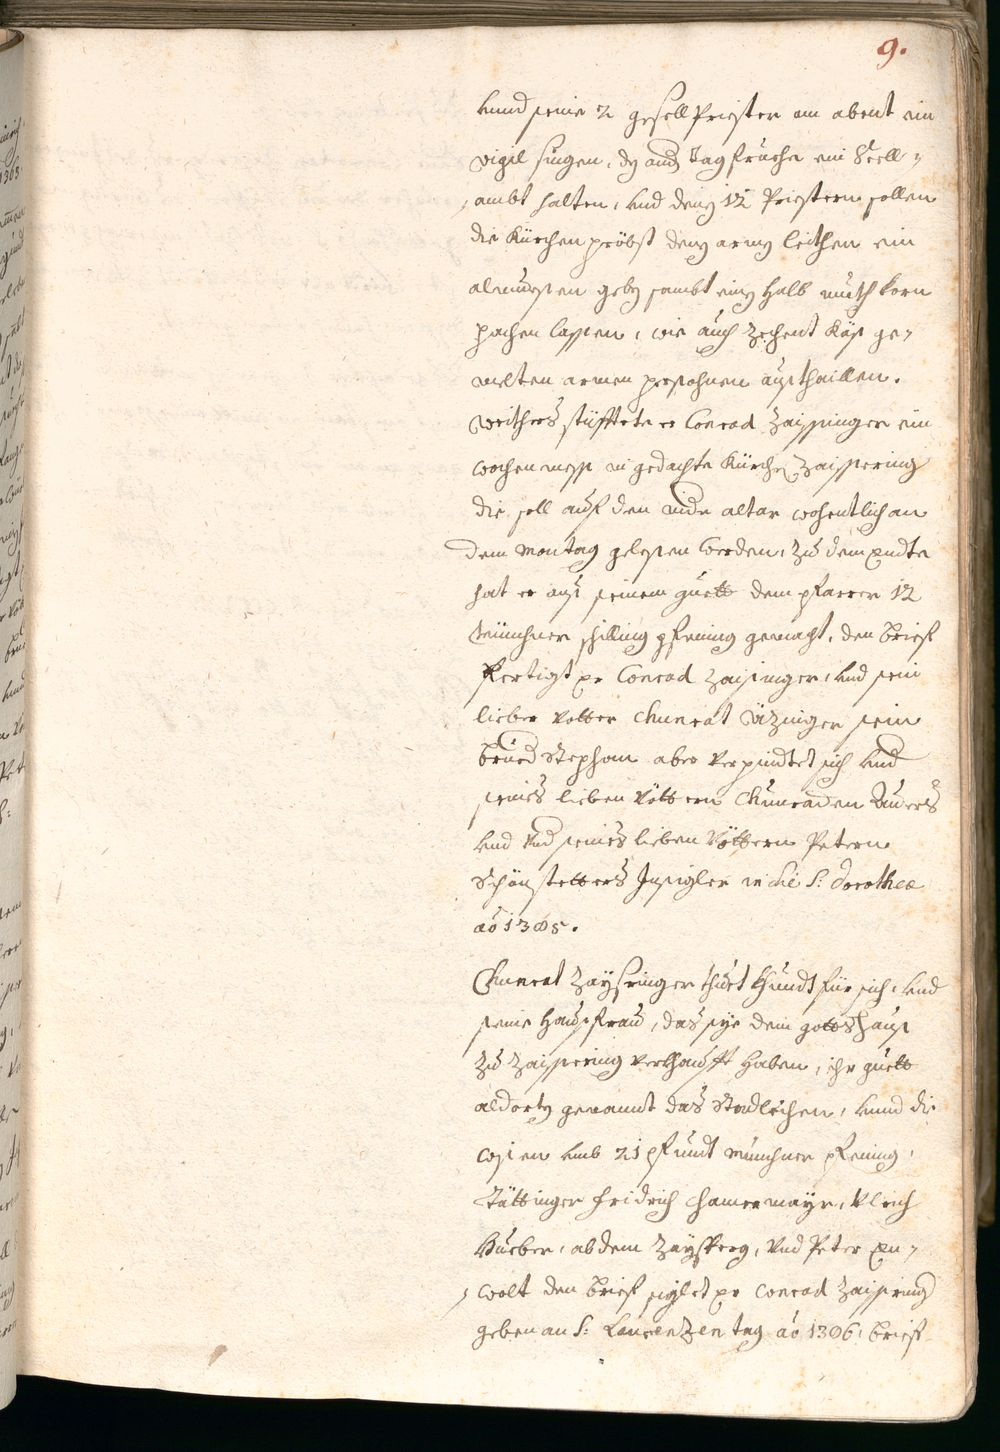 9.
unnd seine 2 gesell Priester am abent ein
vigil singen, dz ander tag fruehe ein Seell¬
ambt halten, und denz 12 Priestern sollen
die Kürchen pröbst denz armz leithen ein
almuesen gebz sambt einz halb muth korn
pachen lassen, wie auch zechent Käß ge¬
melten armen persohnen austhaillen.
weithers stüfftete er Conrad Zaissinger ein
wochen mess in gedachte Kürchen Zaissering
die soll auf den altar wohentlich an
dem Montag gelesen werden, zu dem endte
hat er aus seinem guett dem pfarrer 12
Münchner schilling pfening gemacht, den brief
fertigt er Conrad Zaisinger, und sein
lieber vetter Chunrat sein
brued Stephan aber verpindtet sich und
seines lieben vöttern Chunraden
und seines lieben Vöttern Petern
Schönstetters Insigler in die S: Dorothea
aō 1385.
Chunrat Zaysringer thuet khundt für sich, und
seine hausfrau, das sye dem gottshaus
zu Zaissering verkhaufft haben, ihr guett
aldortz genannt das Stadlechen, unnd die
wisen umb 21 pfundt Münchner pfening,
Tättinger fridrich hamermayr, Ulrich
Hueber, ab dem Zayssperg, und Peter
den brief siglet er Conrad Zaissring
geben an S: Laurenzen tag aō 1386, brief